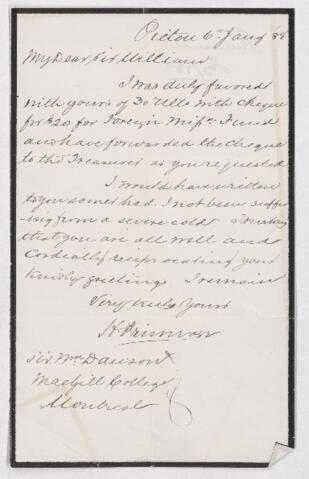 Pictou 6 Jany 88
My Dear Sir William
I was duly favored
with yours of 30 Ulto with cheque
for $20 for Foreign Missn Fund
and have forwarded the cheque
to the Treasurer as you requested
I would have written
to you sooner had I not been suffer
-ing from a severe cold
that you are all well and
Cordially reciprocating your
kindly greetings I remain
Very truly Yours
H Primrose
Sir Wm Dawson
MacGill College
Montreal